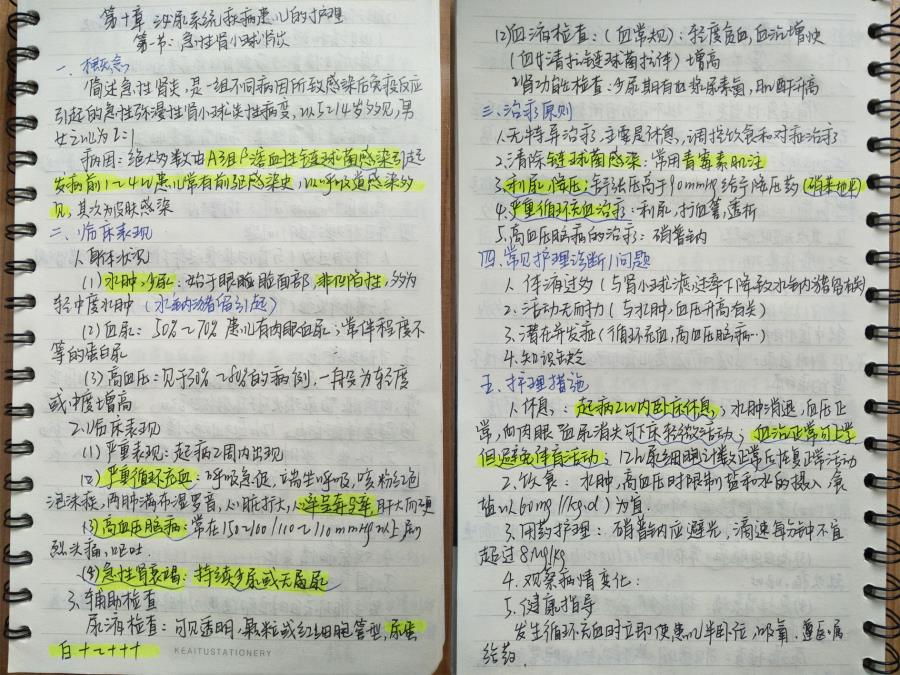 第十章 泌尿系统疾病患儿的护理
第一节：急性肾小球肾炎
一、概念
简述急性肾炎，是一组不同病因所致感染后免疫反应
引起的急性弥漫性肾小球炎性病变，以5~14岁多见，男
女之比为2:1
病因：绝大多数由A组β溶血性链球菌感染引起
发病前1~4W患儿常有前驱感染史，以呼吸道感染多
见，其次为皮肤感染
二、临床表现
1.一般状况
(1)水肿，少尿：始于眼睑脸面部，非凹陷性，多为
轻中度水肿（水钠潴留引起）
(2)血尿：50%~70%患儿有肉眼血尿；常伴程度不
等的蛋白尿
(3)高血压：见于30%~80%的病例，一般为轻度
或中度增高
2.临床表现
(1)严重表现：起病2周内出现
(2)严重循环充血：呼吸急促，端坐呼吸，咳粉红色
泡沫痰，两肺满布湿罗音，心脏扩大，心率呈奔马率，肝大而硬
(3)高血压脑病：常在150~160/110~110mmHg以上剧
烈头痛，呕吐.
(4)急性肾衰竭：持续少尿或无尿
3.辅助检查
尿液检查：可见透明，颗粒或红细胞管型，尿蛋
白+~+++
KEAITUSTATIONERY
(2)血液检查：（血常规）：轻度贫血，血沉增快
（血清抗链球菌抗体）增高
肾功能检查：少尿期有血浆尿素氮，肌酐升高
三、治疗原则
1.无特异治疗，主要是休息，调控饮食和对症治疗
2.清除链球菌感染：常用青霉素肌注
3.利尿，降压：舒张压高于90mmHg给予降压药（硝苯地平）
4.严重循环充血治疗：利尿，扩血管，透析
5.高血压脑病的治疗：硝普钠
四、常见护理诊断/问题
1.体液过多（与肾小球滤过率下降致水钠潴留相关）
2.活动无耐力（与水肿，血压升高有关）
3.潜在并发症（循环充血，高血压脑病…）
4.知识缺乏
五、护理措施
1.休息：起病2W内卧床休息；水肿消退，血压正
常，肉眼血尿消失可下床轻微活动；血沉正常可上学
但避免体育活动；12h尿细胞计数正常后恢复正常活动
2.饮食：水肿，高血压时限制盐和水的摄入，食
盐以60mg/(kg.d)为宜.
3.用药护理：硝普钠应避光，滴速每分钟不宜
超过8μg/kg
4.观察病情变化：
5.健康指导
发生循环充血时立即使患儿半卧位，吸氧.遵医嘱
给药.